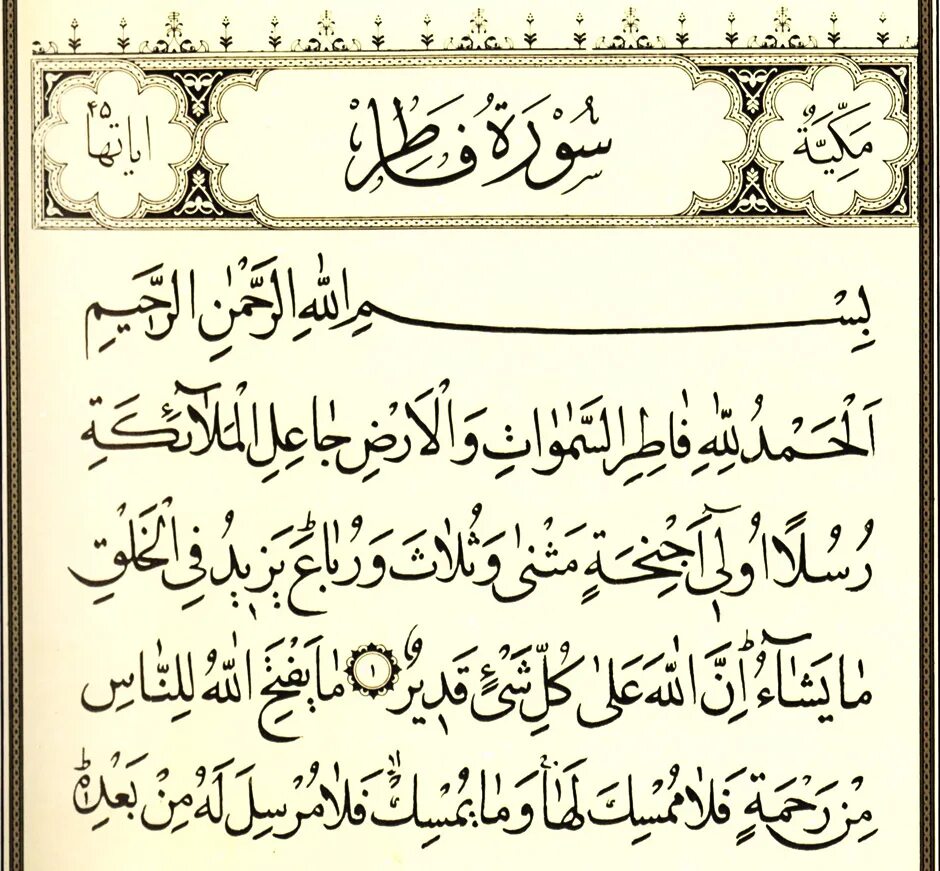 مَكِّيَّةٌ
سُورَةُ فَاطِرٍ
اياتها ۴۵
بِسْمِ اللّٰهِ الرَّحْمٰنِ الرَّحِيمِ
اَلْحَمْدُ لِلّٰهِ فَاطِرِ السَّمٰوَاتِ وَالْاَرْضِ جَاعِلِ الْمَلٰٓائِكَةِ
رُسُلًا اُولٓى اَجْنِحَةٍ مَثْنٰى وَثُلَاثَ وَرُبَاعَ ط يَزِيدُ فِى الْخَلْقِ
مَا يَشَٓاءُ ط اِنَّ اللّٰهَ عَلٰى كُلِّ شَىْءٍ قَدِيرٌ ١ مَا يَفْتَحِ اللّٰهُ لِلنَّاسِ
مِنْ رَحْمَةٍ فَلَا مُمْسِكَ لَهَا ج وَمَا يُمْسِكْ لا فَلَا مُرْسِلَ لَهُ مِنْ بَعْدِهِ ط